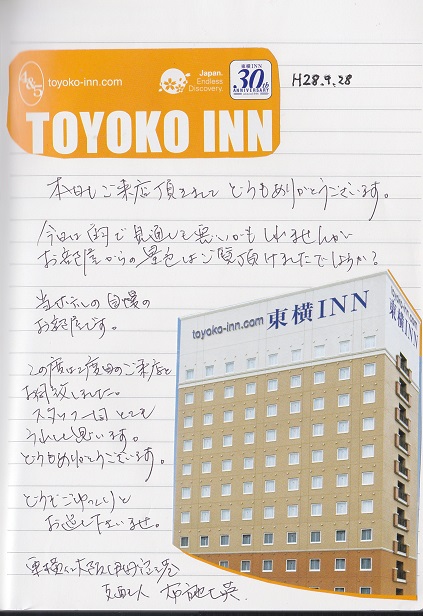 A&5
toyoko-inn.com
Japan.
Endless
Discovery.
東横INN
30th
ANNIVERSARY
H28.9.28
TOYOKO INN
本日もご来店頂きまして どうもありがとうございます。
今日は雨で見通しも悪いかもしれませんが
お部屋からの景色はご覧頂けましたでしょうか?
当ホテルの自慢の
お部屋です。
この度は2度目のご来店と
お聞きしました。
スタッフ一同とても
うれしく思います。
どうもありがとうございます。
どうぞごゆっくりと
お過し下さいませ。
toyoko-inn.com 東横INN
東横INN
支配人